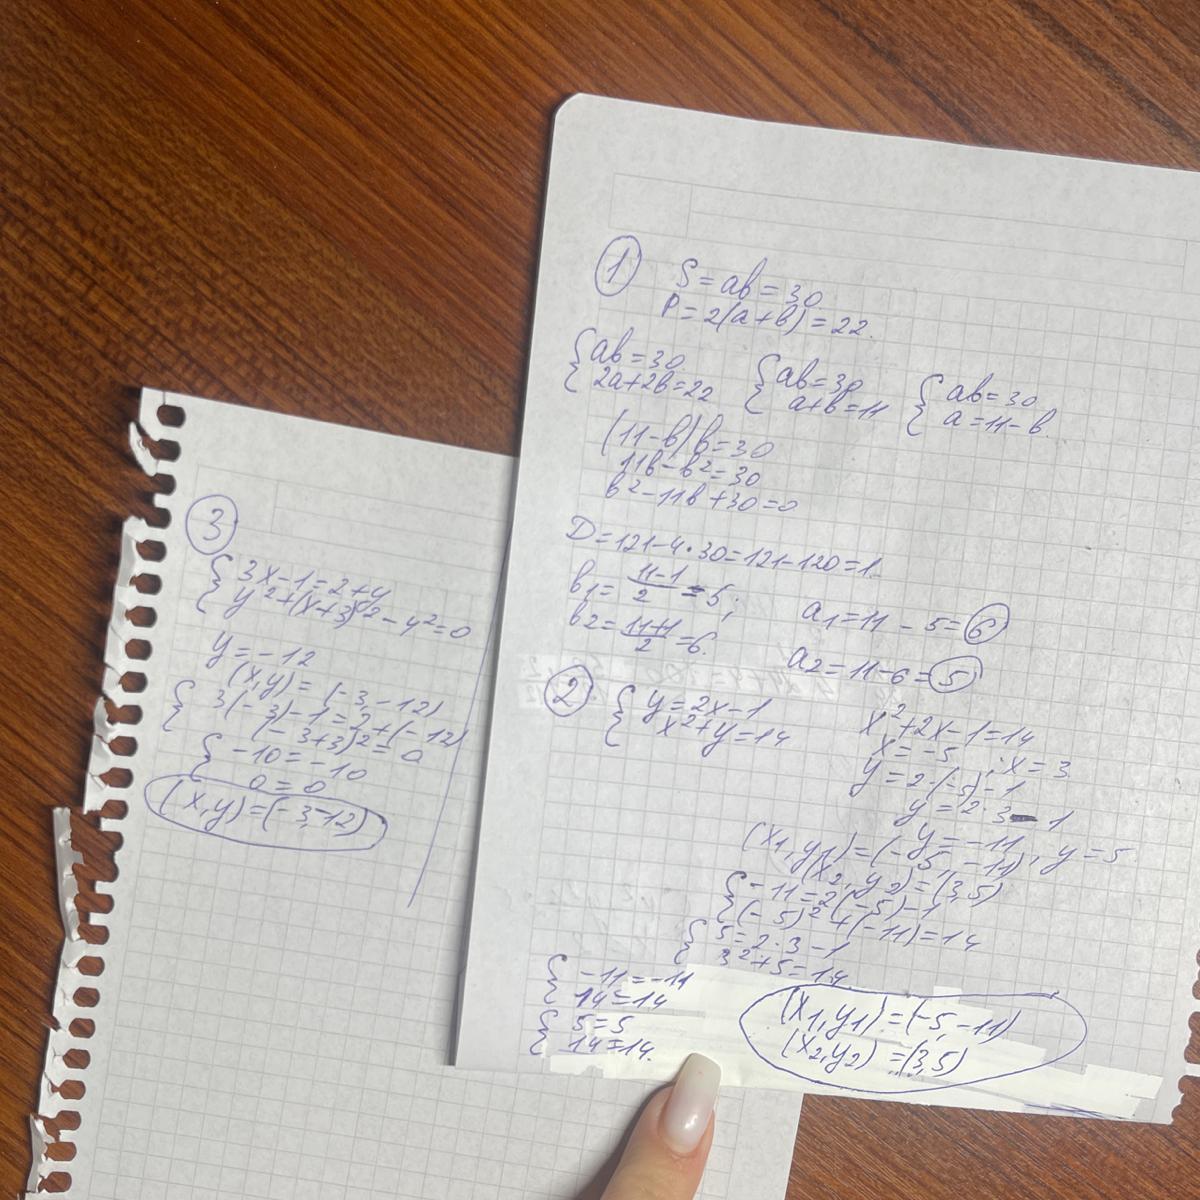 1
S = ab = 30
P = 2(a+b) = 22.
{ab = 30 {ab = 30 {ab = 30
2a+2b = 22 a+b = 11 a = 11 - b.
(11-b)b = 30
11b - b² = 30
b² - 11b + 30 = 0
D = 121 - 4·30 = 121 - 120 = 1.
b1 = (11-1)/2 = 5; a1 = 11 - 5 = 6
b2 = (11+1)/2 = 6. a2 = 11 - 6 = 5
2
{y = 2x - 1 x² + 2x - 1 = 14
x² + y = 14 x = -5 ; x = 3
y = 2·(-5) - 1
y = 2·3 - 1
y = -11; y = 5.
(x1, y1) = (-5, -11)
(x2, y2) = (3,5)
{-11 = 2(-5) - 1
(-5)² + (-11) = 14
{5 = 2·3 - 1
3² + 5 = 14
{-11 = -11
14 = 14
{5 = 5
14 = 14.
(x1, y1) = (-5, -11)
(x2, y2) = (3,5)
3
{3x - 1 = 2 + y
y² + (x+3)² - y² = 0
y = -12
(x,y) = (-3, -12)
{3(-3) - 1 = 2 + (-12)
(-3+3)² = 0
{-10 = -10
0 = 0
(x,y) = (-3, -12)